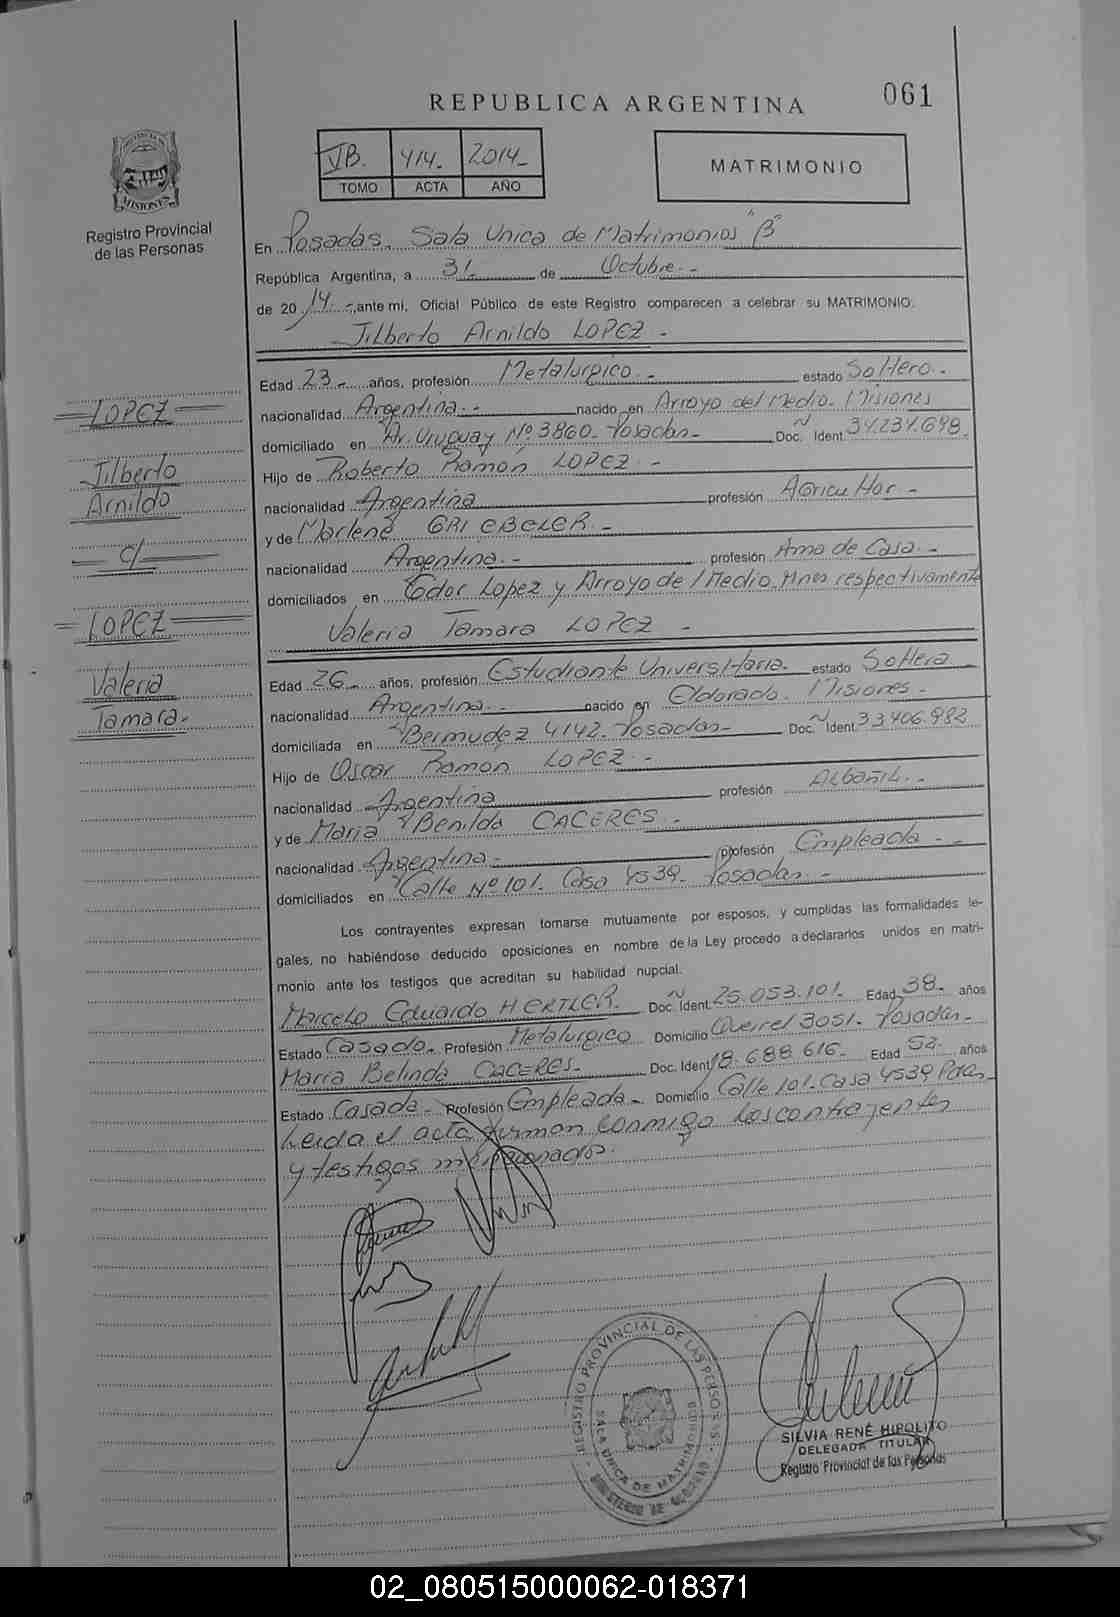 061
REPUBLICA ARGENTINA
VB. 414. 2014-
TOMO ACTA AÑO
MATRIMONIO
MISIONES
Registro Provincial
de las Personas
En Posadas. Sala Unica de Matrimonios "B"
República Argentina, a 31 de Octubre.-
de 2014.-, ante mí, Oficial Público de este Registro comparecen a celebrar su MATRIMONIO.
Jilberto Arnildo LOPEZ.-
Edad 23- años, profesión Metalurgico.- estado Soltero.-
nacionalidad Argentina.- nacido en Arroyo del Medio. Misiones
domiciliado en Av. Uruguay Nº 3860. Posadas- Doc. Ident. 34.234.698.
Hijo de Roberto Ramon LOPEZ.-
nacionalidad Argentina profesión Agricultor-
y de Marlene GRIEBELER.-
nacionalidad Argentina.- profesión Ama de Casa.-
domiciliados en Lopez y Arroyo del Medio. Mnes respectivamente
Valeria Tamara LOPEZ-
Edad 26- años, profesión Estudiante Universitaria. estado Soltera
nacionalidad Argentina.- nacido en Eldorado. Misiones-
domiciliada en Bermudez 4142. Posadas- Doc. Ident. 33.406.982
Hijo de Oscar Ramon LOPEZ.-
nacionalidad Argentina profesión Albañil.-
y de Maria Benilda CACERES.-
nacionalidad Argentina- profesión Empleada-
domiciliados en Calle Nº 101. Casa 4539. Posadas-
Los contrayentes expresan tomarse mutuamente por esposos, y cumplidas las formalidades le-
gales, no habiéndose deducido oposiciones en nombre de la Ley procedo a declararlos unidos en matri-
monio ante los testigos que acreditan su habilidad nupcial.
Marcelo Eduardo HERTLER. Doc. Ident. 25.053.101. Edad 38. años
Estado Casado- Profesión Metalurgico Domicilio Queirel 3051. Posadas-
Maria Belinda CACERES- Doc. Ident. 18.688.616- Edad 52. años
Estado Casada- Profesión Empleada- Domicilio Calle 101. Casa 4539 Pdas-
Leida el acta firman conmigo los contrayentes
y testigos mencionados.
LOPEZ
Jilberto
Arnildo
C/
LOPEZ
Valeria
Tamara-
REGISTRO PROVINCIAL DE LAS PERSONAS
SALA UNICA DE MATRIMONIOS
SILVIA RENÉ HIPOLITO
DELEGADA TITULAR
Registro Provincial de las Personas
02_080515000062-018371